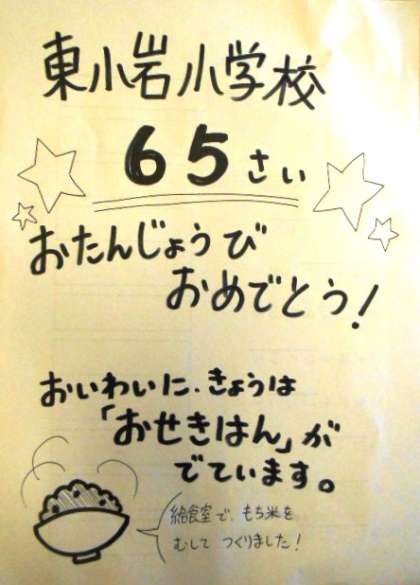 東小岩小学校
65さい
おたんじょうび
おめでとう!
おいわいに、きょうは
「おせきはん」が
でています。
給食室で、もち米を
むして つくりました!